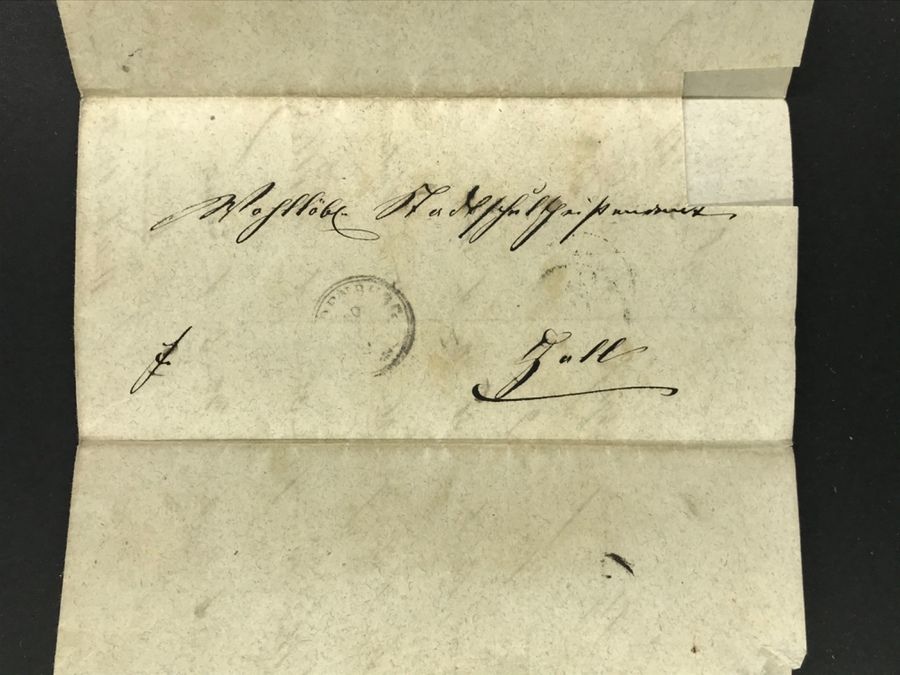 Wohllöbl. Stadtschultheißenamt
Hall